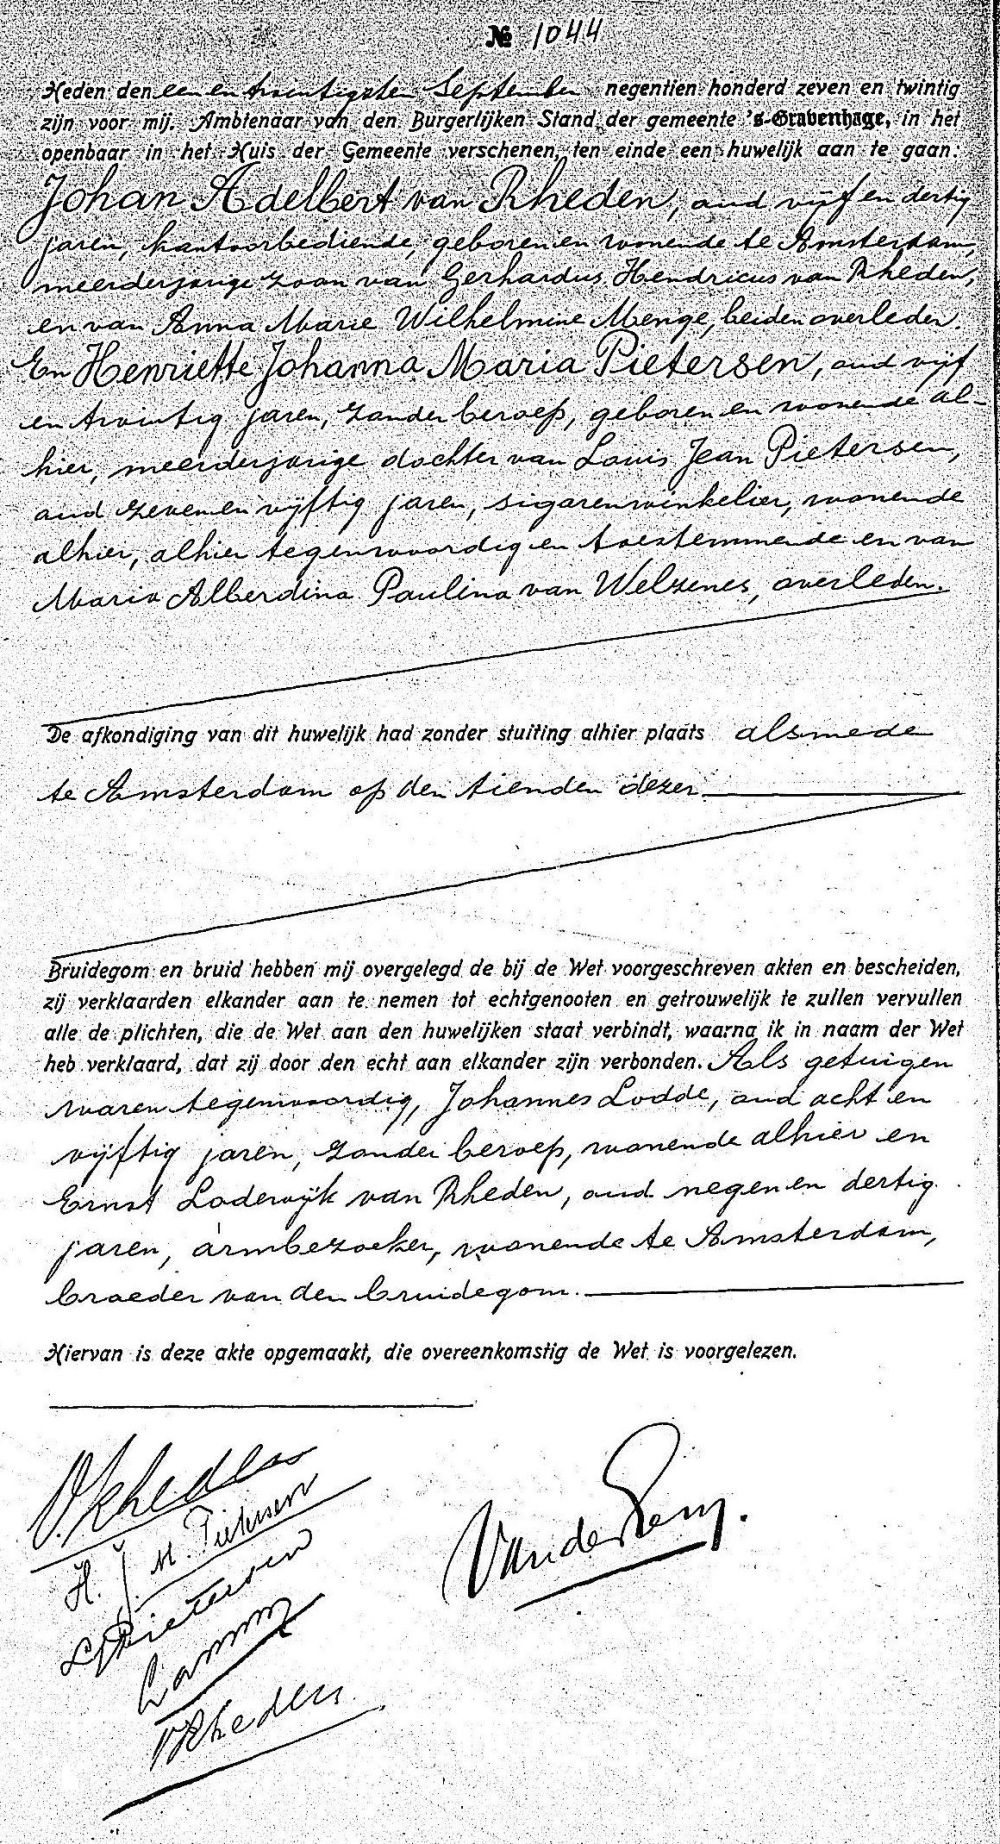 № 1044
Heden den een en twintigsten September negentien honderd zeven en twintig
zijn voor mij, Ambtenaar van den Burgerlijken Stand der gemeente 's-Gravenhage, in het
openbaar in het Huis der Gemeente verschenen, ten einde een huwelijk aan te gaan:
Johan Adelbert van Rheden, oud vijf en dertig
jaren, kantoorbediende, geboren en wonende te Amsterdam,
meerderjarige zoon van Gerhardus Hendricus van Rheden,
en van Anna Marie Wilhelmine Menge, beiden overleden.
En Henriette Johanna Maria Pietersen, oud vijf
en twintig jaren, zonder beroep, geboren en wonende al-
hier, meerderjarige dochter van Louis Jean Pietersen,
oud zeven en vijftig jaren, sigarenwinkelier, wonende
alhier, alhier tegenwoordig en toestemmende en van
Maria Alberdina Paulina van Welzenes, overleden.
De afkondiging van dit huwelijk had zonder stuiting alhier plaats alsmede
te Amsterdam op den tienden dezer.
Bruidegom en bruid hebben mij overgelegd de bij de Wet voorgeschreven akten en bescheiden,
zij verklaarden elkander aan te nemen tot echtgenooten en getrouwelijk te zullen vervullen
alle de plichten, die de Wet aan den huwelijken staat verbindt, waarna ik in naam der Wet
heb verklaard, dat zij door den echt aan elkander zijn verbonden. Als getuigen
waren tegenwoordig, Johannes Lodde, oud acht en
vijftig jaren, zonder beroep, wonende alhier en
Ernst Lodewijk van Rheden, oud negen en dertig
jaren, armbezoeker, wonende te Amsterdam,
broeder van den bruidegom.
Hiervan is deze akte opgemaakt, die overeenkomstig de Wet is voorgelezen.
V. Rheden
H. J. M. Pietersen
LJPietersen
VRheden